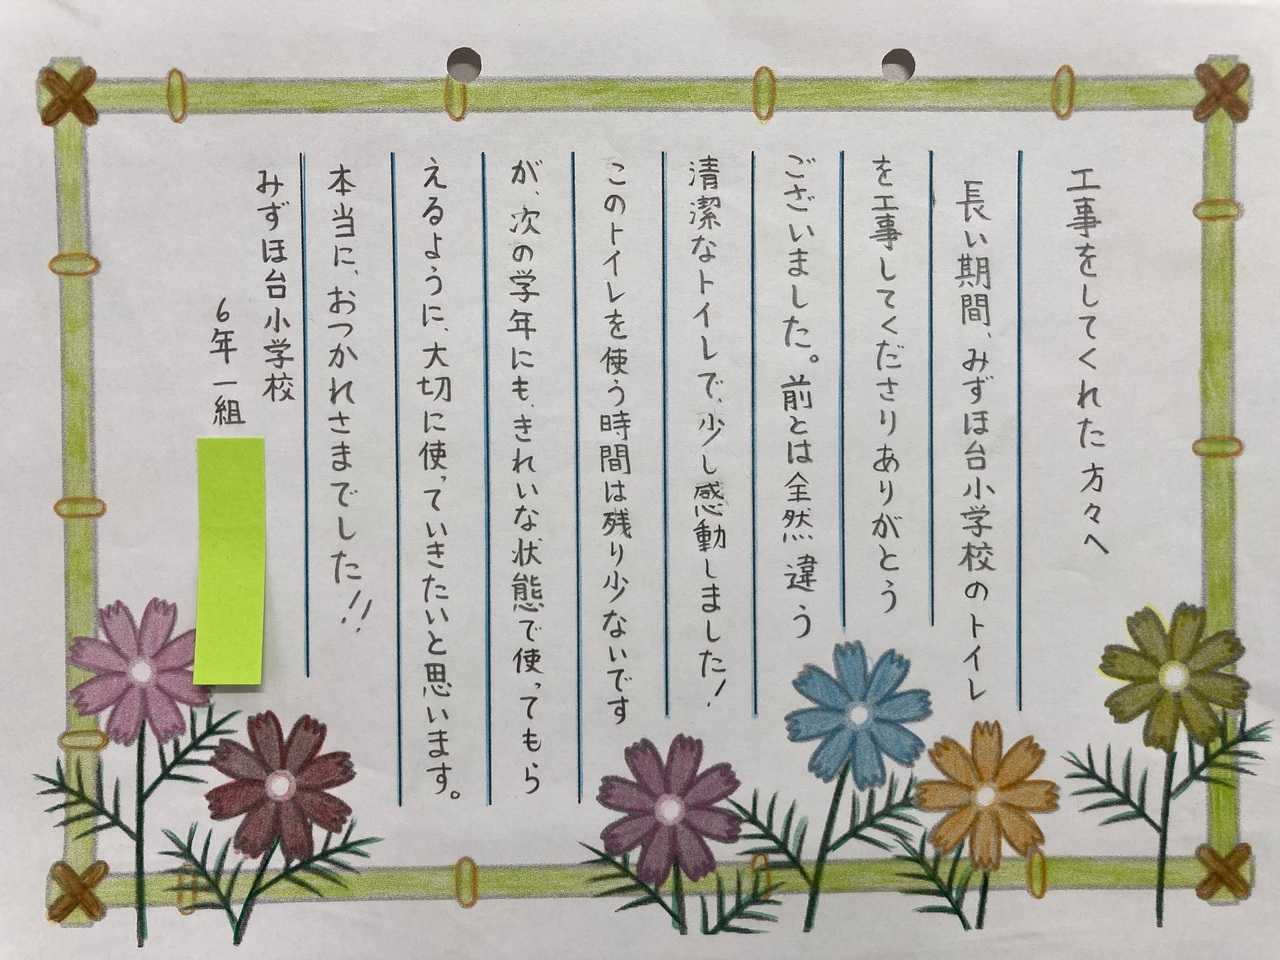 工事をしてくれた方々へ
長い期間、みずほ台小学校のトイレ
を工事してくださりありがとう
ございました。前とは全然違う
清潔なトイレで、少し感動しました！
このトイレを使う時間は残り少ないです
が、次の学年にも、きれいな状態で使ってもら
えるように、大切に使っていきたいと思います。
本当に、おつかれさまでした!!
みずほ台小学校
6年一組